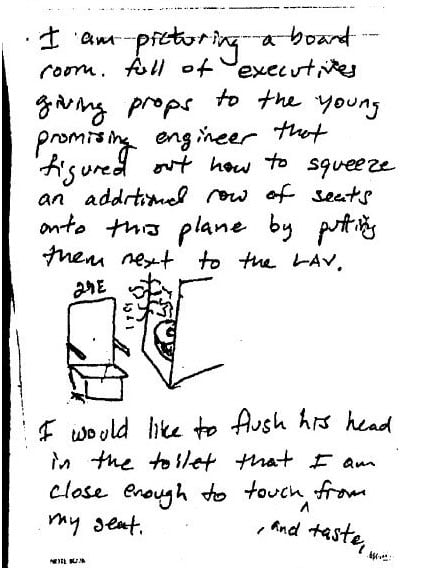 I am picturing a board
room. full of executives
giving props to the young
promising engineer that
figured out how to squeeze
an additional row of seats
onto this plane by putting
them next to the LAV.
29E
I would like to flush his head
in the toilet that I am
close enough to touch, from
my seat. ^, and taste,